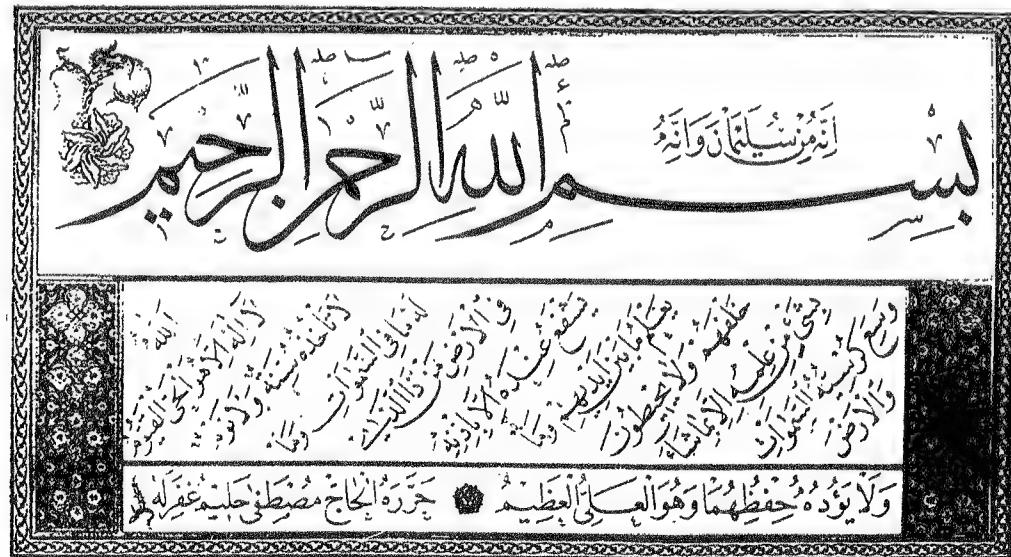 اِنَّهُ مِنْ سُلَيْمَانَ وَاِنَّهُ
بِسْمِ اللهِ الرَّحْمٰنِ الرَّحِيمِ
اَللهُ
لَا اِلٰهَ اِلَّا هُوَ الْحَيُّ الْقَيُّومُ
لَا تَأْخُذُهُ سِنَةٌ وَلَا نَوْمٌ
لَهُ مَا فِي السَّمٰوَاتِ وَمَا
فِي الْاَرْضِ مَنْ ذَا الَّذِي
يَشْفَعُ عِنْدَهُ اِلَّا بِاِذْنِهِ
يَعْلَمُ مَا بَيْنَ اَيْدِيهِمْ وَمَا
خَلْفَهُمْ وَلَا يُحِيطُونَ
بِشَيْءٍ مِنْ عِلْمِهِ اِلَّا بِمَا شَاءَ
وَسِعَ كُرْسِيُّهُ السَّمٰوَاتِ
وَالْاَرْضَ
وَلَا يَؤُدُهُ حِفْظُهُمَا وَهُوَ الْعَلِيُّ الْعَظِيمُ حَرَّرَهُ الْحَاجّ مُصْطَفَى حَلِيم غُفِرَ لَهُ